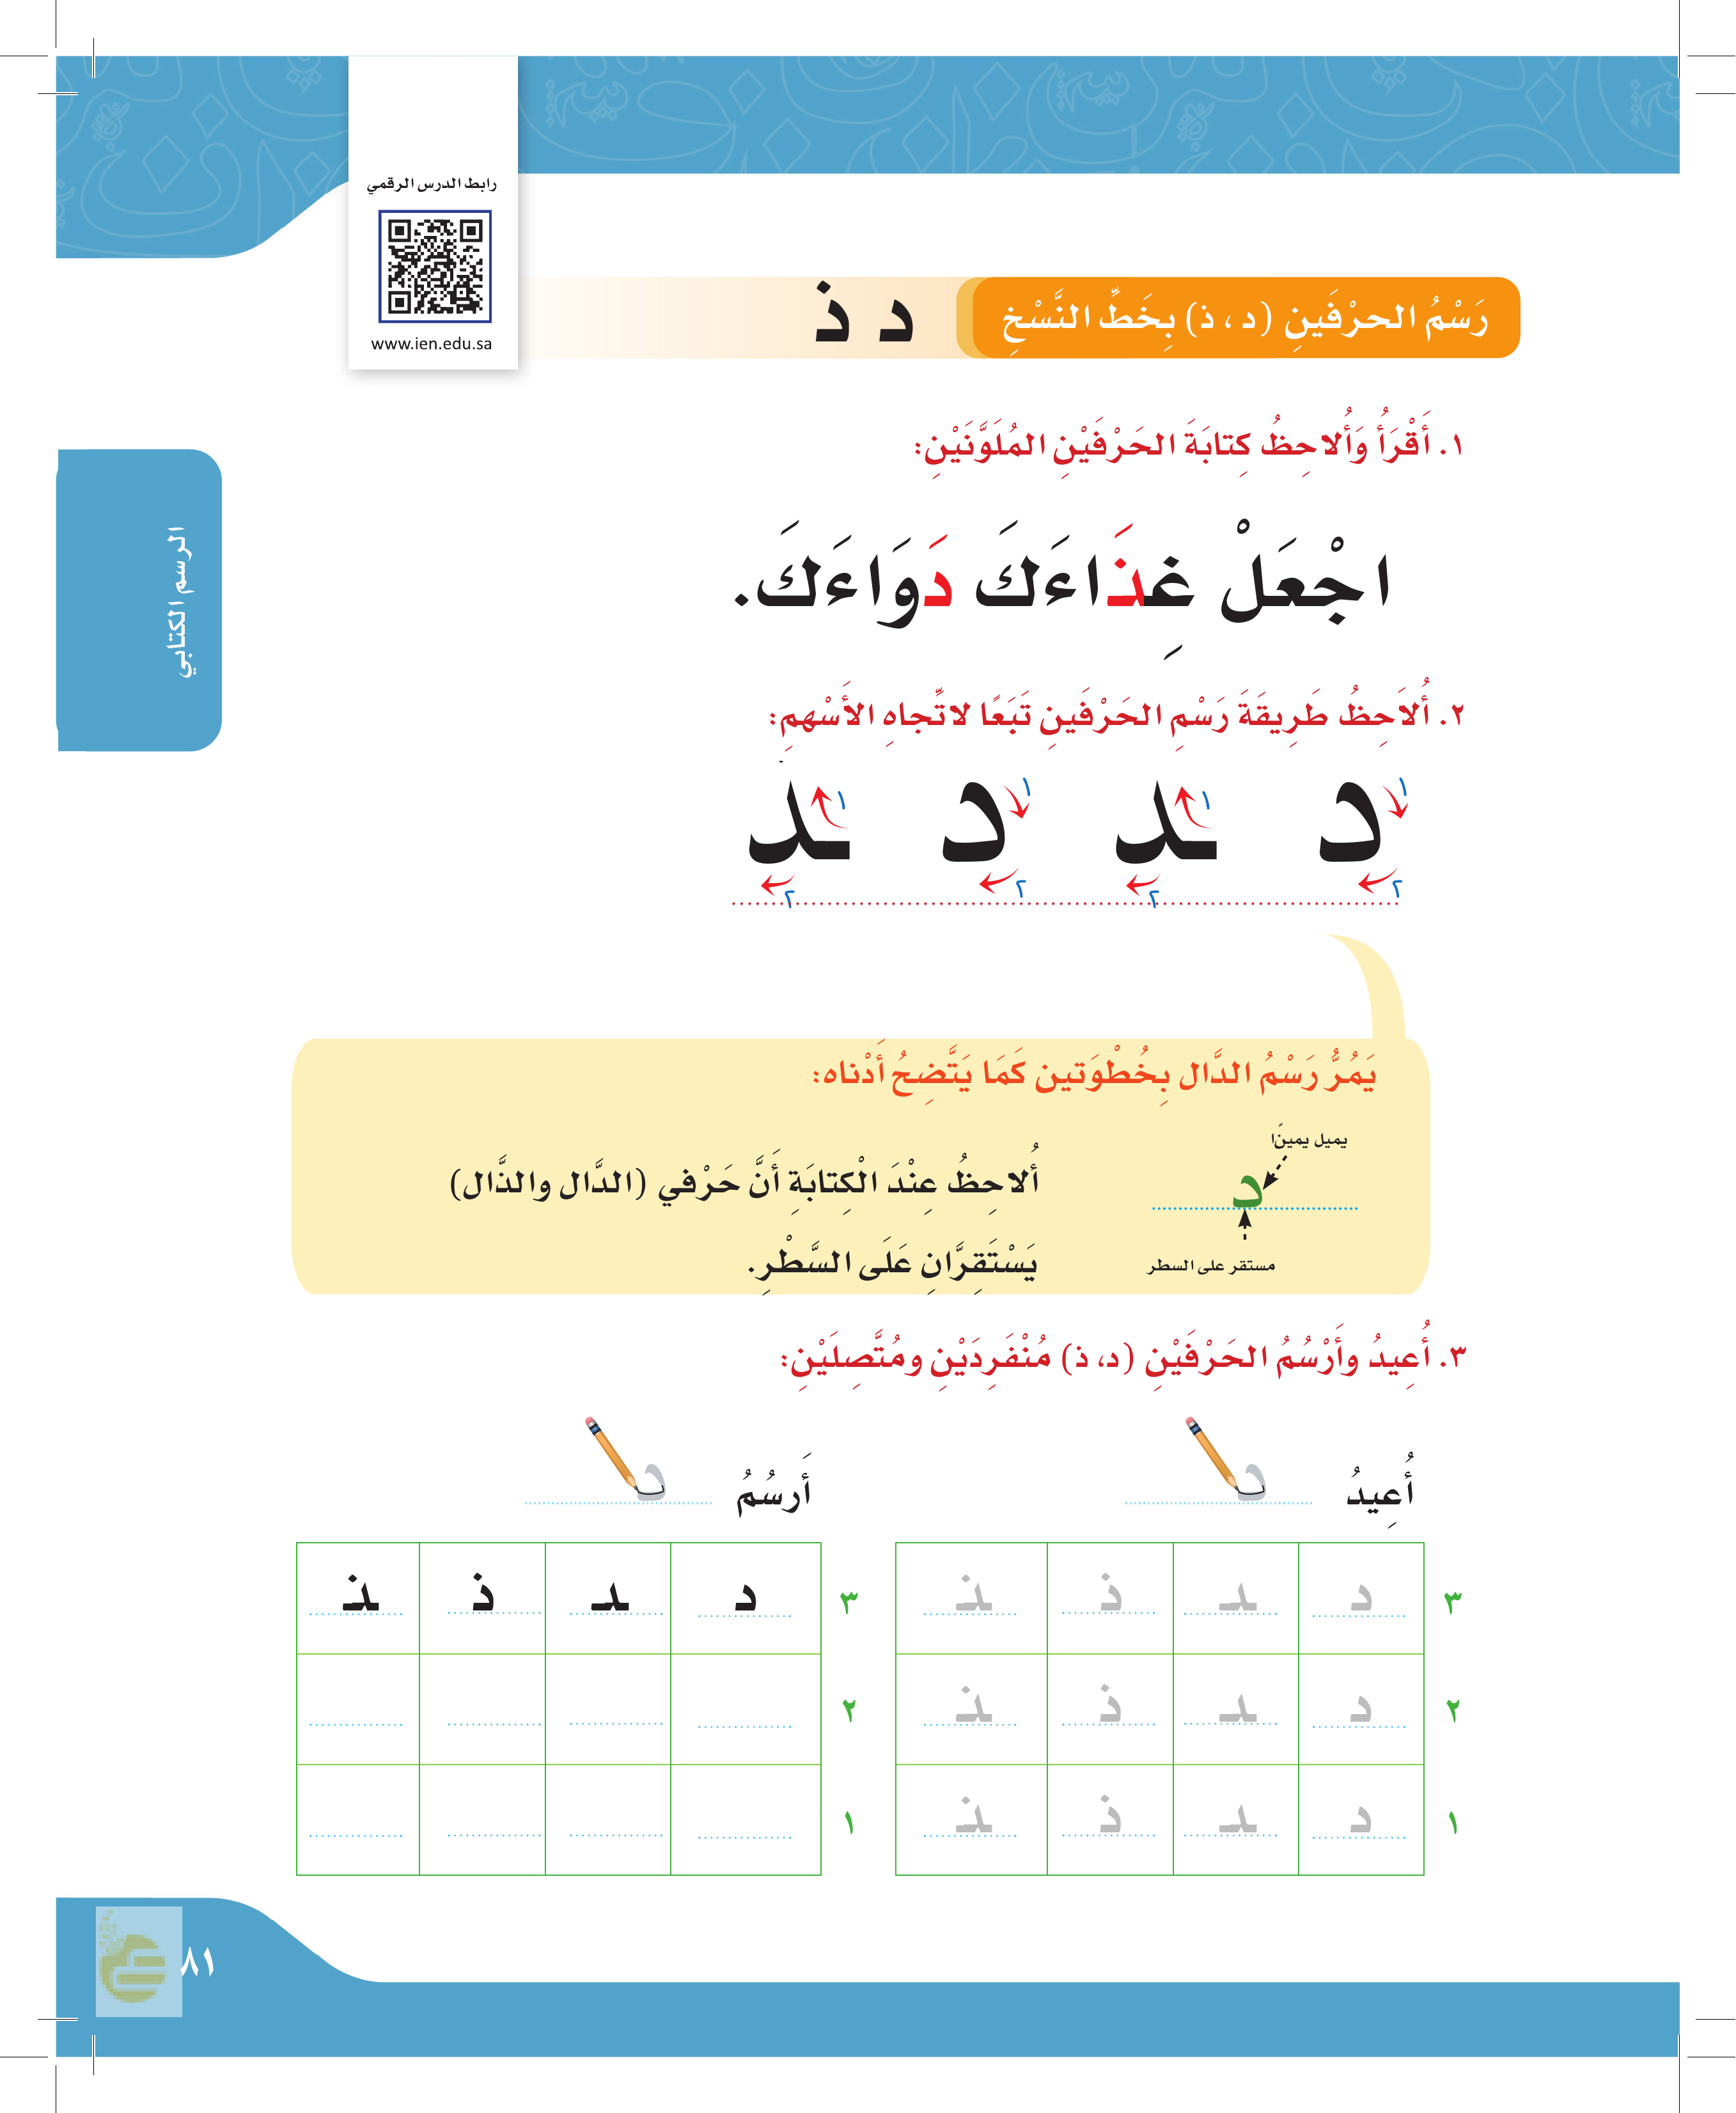 رابط الدرس الرقمي
www.ien.edu.sa
رَسْمُ الحرْفَينِ (د ، ذ) بِخَطِّ النَّسْخِ
د ذ
١. أَقْرَأُ وَأُلاحِظُ كِتابَةَ الحَرْفَيْنِ المُلَوَّنَيْنِ:
اجْعَلْ غِذَاءَكَ دَوَاءَكَ.
الرسم الكتابي
٢. أُلاَحِظُ طَرِيقَةَ رَسْمِ الحَرْفَينِ تَبَعًا لاتِّجاهِ الأَسْهمِ:
١ ١ ١ ١
د ـد د ـد
٢ ٢ ٢ ٢
يَمُرُّ رَسْمُ الدَّال بِخُطْوَتين كَمَا يَتَّضِحُ أَدْناه:
يميل يمينًا
د
مستقر على السطر
أُلاحِظُ عِنْدَ الْكِتابَةِ أَنَّ حَرْفي (الدَّال والذَّال)
يَسْتَقِرَّانِ عَلَى السَّطْرِ.
٣. أُعِيدُ وأَرْسُمُ الحَرْفَيْنِ (د، ذ) مُنْفَرِدَيْنِ ومُتَّصِلَيْنِ:
أُعِيدُ د
٣ د ـد ذ ـذ
٢ د ـد ذ ـذ
١ د ـد ذ ـذ
أَرسُمُ د
٣ د ـد ذ ـذ
٢
١
٨١